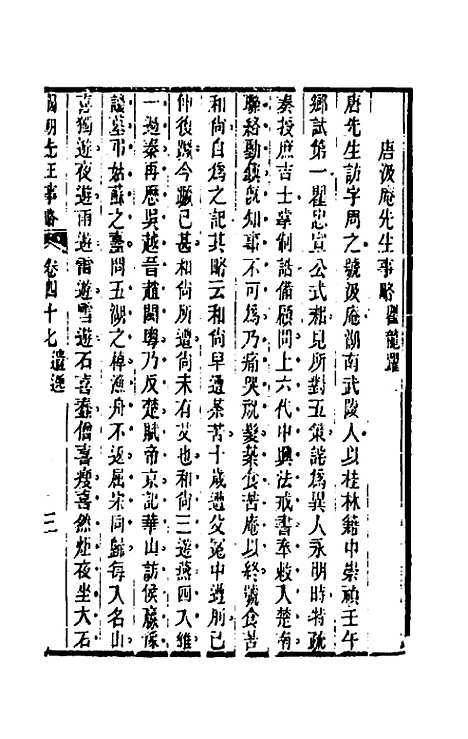 唐汲庵先生事略 瞿龍躍
唐先生訪字周之號汲庵湖南武陵人以桂林籍中崇禎壬午
鄉試第一瞿忠宣公式耜見所對五策詫爲異人永明時特疏
奏授庶吉士掌制誥備顧問上六代中興法戒書奉敕入楚南
聯絡勳鎮旣知事不可爲乃痛哭祝髮葬食苦庵以終號食苦
和尚自爲之記其略云和尚早遘荼苦十歲遭父冤中遘刖己
仲後躐今躐已甚和尚所遭尚未有艾也和尚三遊燕四入維
一過秦再歷吳越晉趙閩粵乃反楚賦帝京記華山訪侯嬴
謔墓弔姑蘇之臺問五湖之棹漁舟不返屈宋同歸每入名山
喜獨遊夜遊雨遊雷遊雪遊石喜蠢僧喜瘦喜然炬夜坐大石
國朝先正事略 卷四十七 遺逸 三